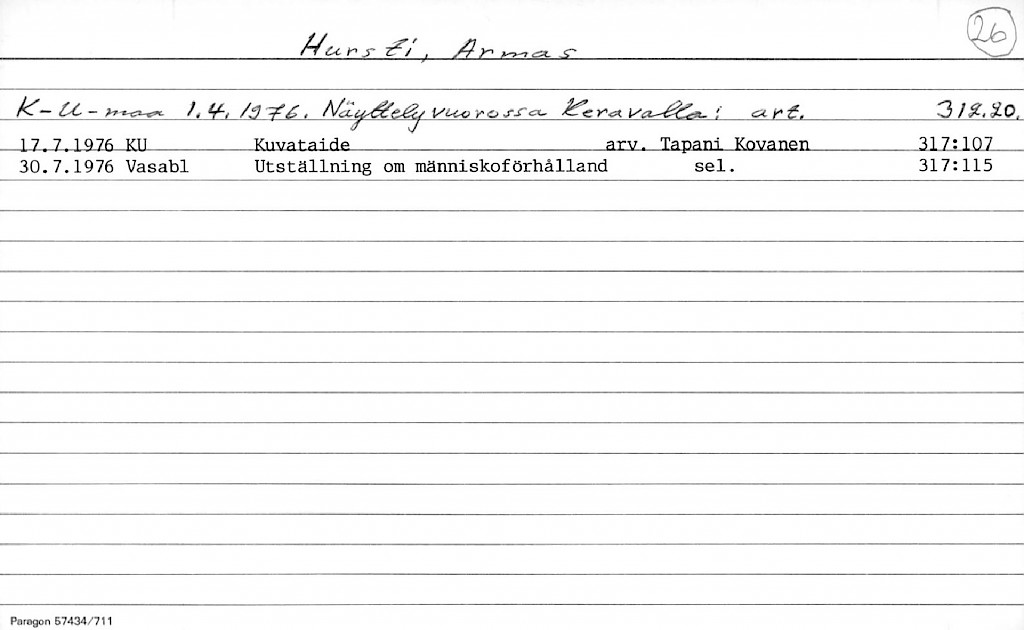 26
Hursti, Armas
K-U-maa 1.4.1976. Näyttelyvuorossa Keravalla: art. 312.20.
17.7.1976 KU Kuvataide arv. Tapani Kovanen 317:107
30.7.1976 Vasabl Utställning om människoförhålland sel. 317:115
Paragon 57434/711